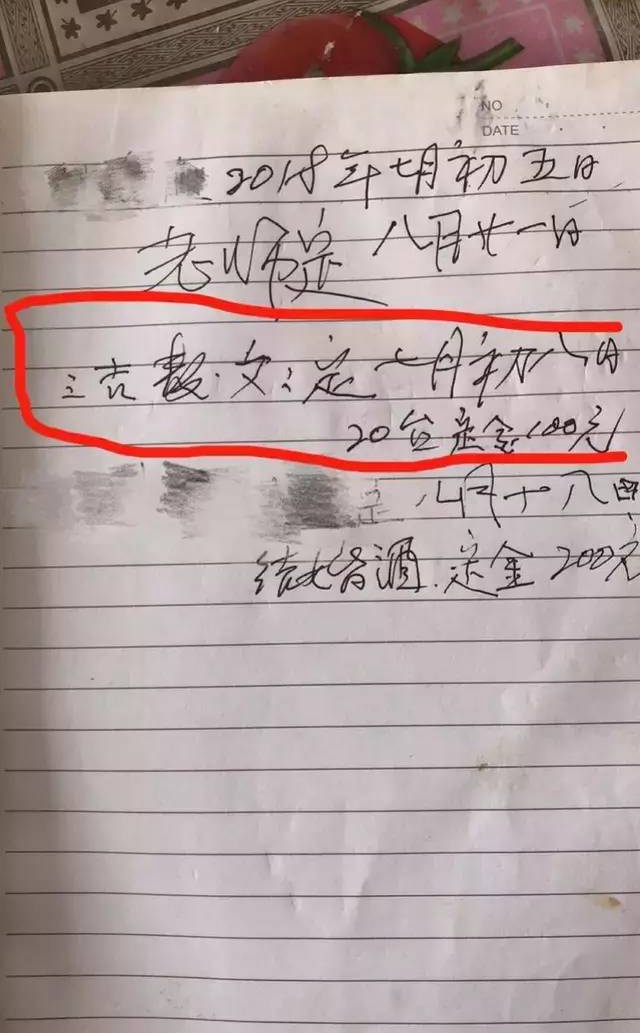 NO
DATE
2018年七月初五日
老师定 八月廿一日
吉 文:定七月初八日
20台定金100元
八月十八日
结婚酒.定金200元